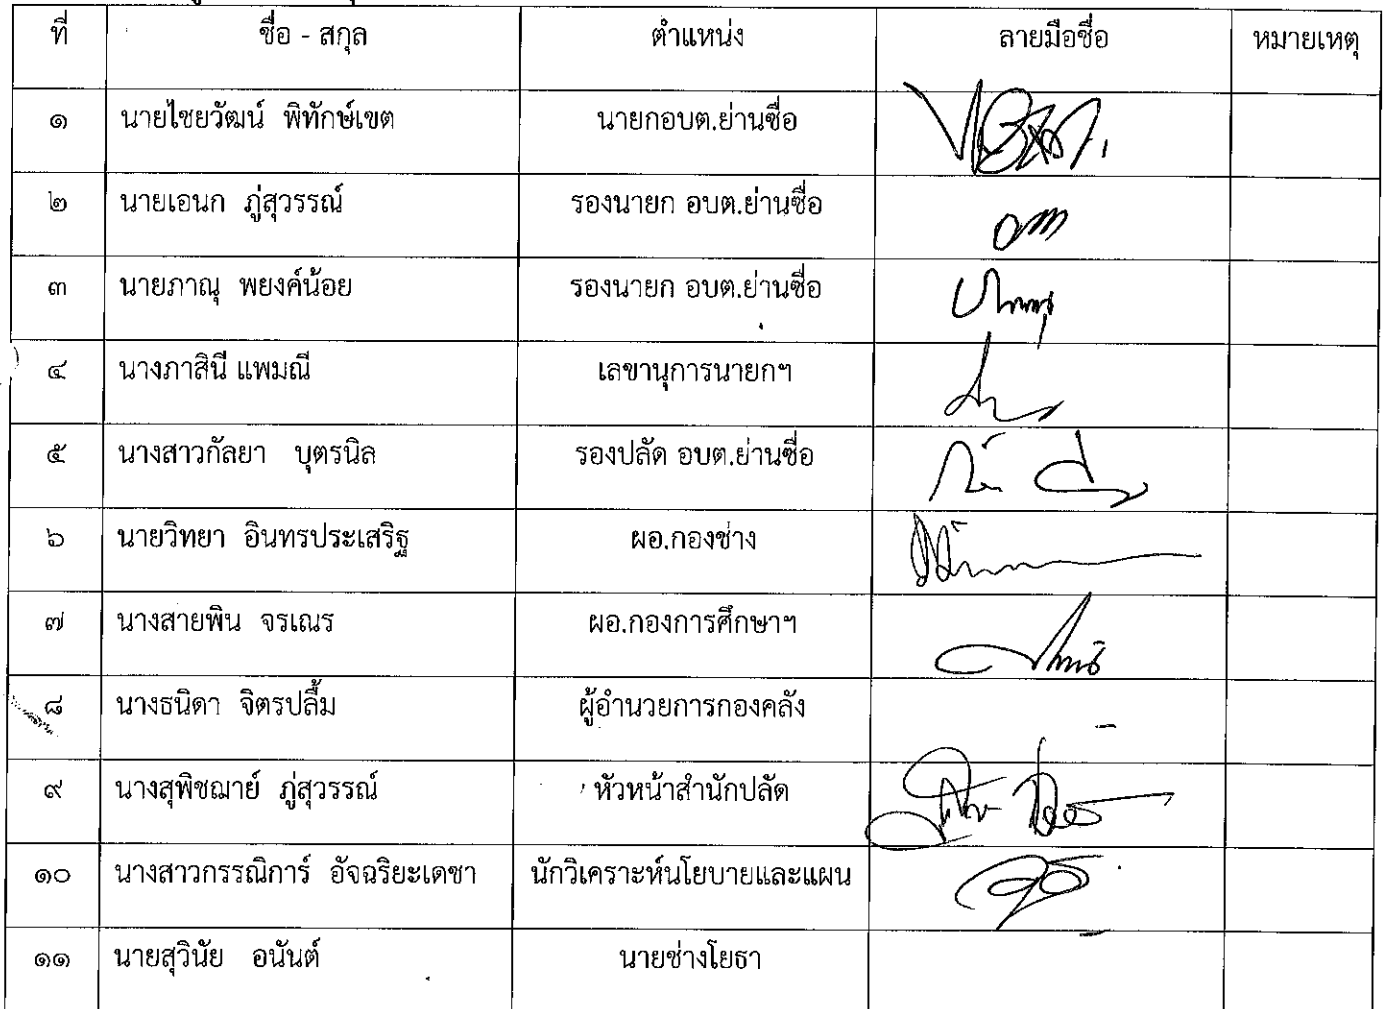 ที่ ชื่อ - สกุล ตำแหน่ง ลายมือชื่อ หมายเหตุ
๑ นายไชยวัฒน์ พิทักษ์เขต นายกอบต.ย่านซื่อ
๒ นายเอนก ภู่สุวรรณ์ รองนายก อบต.ย่านซื่อ
๓ นายภาณุ พยงค์น้อย รองนายก อบต.ย่านซื่อ
๔ นางภาสินี แพมณี เลขานุการนายกฯ
๕ นางสาวกัลยา บุตรนิล รองปลัด อบต.ย่านซื่อ
๖ นายวิทยา อินทรประเสริฐ ผอ.กองช่าง
๗ นางสายพิน จรเณร ผอ.กองการศึกษาฯ
๘ นางธนิดา จิตรปลื้ม ผู้อำนวยการกองคลัง
๙ นางสุพิชฌาย์ ภู่สุวรรณ์ หัวหน้าสำนักปลัด
๑๐ นางสาวกรรณิการ์ อัจฉริยะเดชา นักวิเคราะห์นโยบายและแผน
๑๑ นายสุวินัย อนันต์ นายช่างโยธา